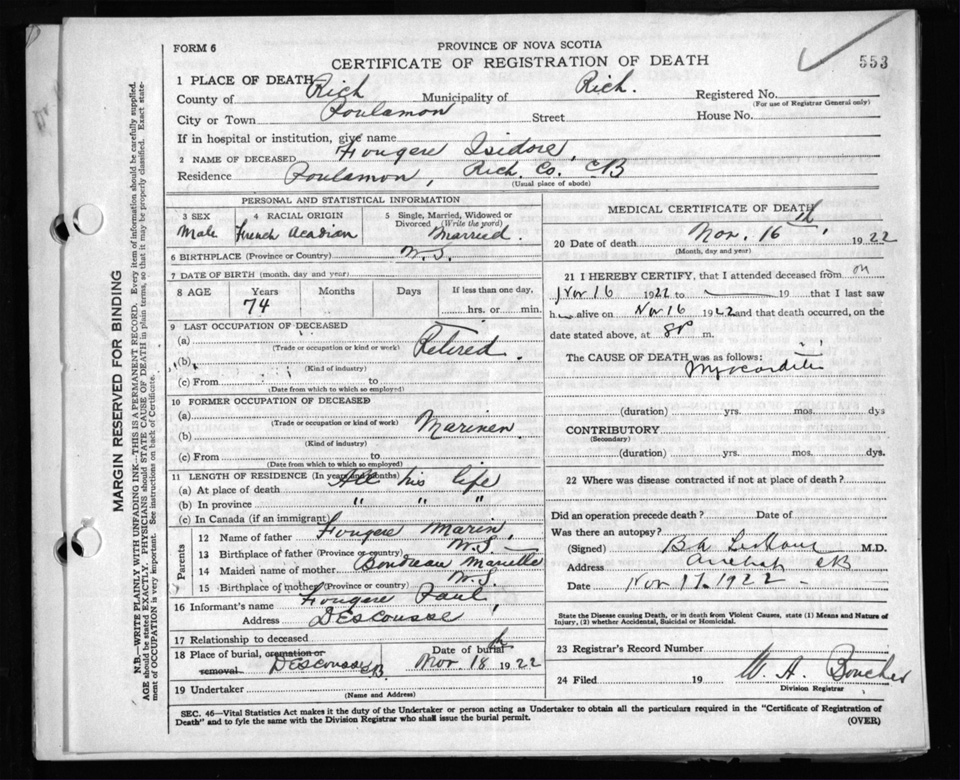 FORM 6
PROVINCE OF NOVA SCOTIA
CERTIFICATE OF REGISTRATION OF DEATH
553
1 PLACE OF DEATH
County of Rich Municipality of Rich. Registered No.
(For use of Registrar General only)
City or Town Poulamon Street House No.
If in hospital or institution, give name
2 NAME OF DECEASED Fougere Isidore,
Residence Poulamon, Rich. Co. CB
(Usual place of abode)
PERSONAL AND STATISTICAL INFORMATION
3 SEX Male
4 RACIAL ORIGIN French Acadian
5 Single, Married, Widowed or Divorced (Write the word) Married.
6 BIRTHPLACE (Province or Country) N.S.
7 DATE OF BIRTH (month, day and year)
8 AGE Years 74 Months Days If less than one day, hrs. or min.
9 LAST OCCUPATION OF DECEASED
(a) Retired.
(Trade or occupation or kind or work)
(b)
(Kind of industry)
(c) From to
(Date from which to which so employed)
10 FORMER OCCUPATION OF DECEASED
(a)
(Trade or occupation or kind of work)
(b) Mariner.
(Kind of industry)
(c) From to
(Date from which to which so employed)
11 LENGTH OF RESIDENCE (In years and months)
(a) At place of death All his life
(b) In province " " "
(c) In Canada (if an immigrant)
Parents
12 Name of father Fougere Marin,
13 Birthplace of father (Province or country) N.S.
14 Maiden name of mother Boudreau
15 Birthplace of mother (Province or country) N.S.
16 Informant's name Fougere Paul,
Address DEScousse
17 Relationship to deceased
18 Place of burial, cremation or removal DEScousse CB. Date of burial Nov 18th 1922
19 Undertaker
(Name and Address)
MEDICAL CERTIFICATE OF DEATH
20 Date of death Nov. 16th, 1922
(Month, day and year)
21 I HEREBY CERTIFY, that I attended deceased from on
Nov 16 1922 to 19 that I last saw
h alive on Nov 16 1922 and that death occurred, on the
date stated above, at 8p m.
The CAUSE OF DEATH was as follows:
Myocarditis
(duration) yrs. mos. dys
CONTRIBUTORY
(Secondary)
(duration) yrs. mos. dys.
22 Where was disease contracted if not at place of death?
Did an operation precede death? Date of
Was there an autopsy?
(Signed) M.D.
Address Arichat CB
Date Nov 17. 1922
State the Disease causing Death, or in death from Violent Causes, state (1) Means and Nature of Injury, (2) whether Accidental, Suicidal or Homicidal.
23 Registrar's Record Number
24 Filed 19 W. A. Boucher
Division Registrar
SEC. 46—Vital Statistics Act makes it the duty of the Undertaker or person acting as Undertaker to obtain all the particulars required in the "Certificate of Registration of
Death" and to fyle the same with the Division Registrar who shall issue the burial permit.
(OVER)
MARGIN RESERVED FOR BINDING
N.B.—WRITE PLAINLY WITH UNFADING INK—THIS IS A PERMANENT RECORD. Every item of information should be carefully supplied.
AGE should be stated EXACTLY. PHYSICIANS should STATE CAUSE OF DEATH in plain terms, so that it may be properly classified. Exact state-
ment of OCCUPATION is very important. See instructions on back of Certificate.